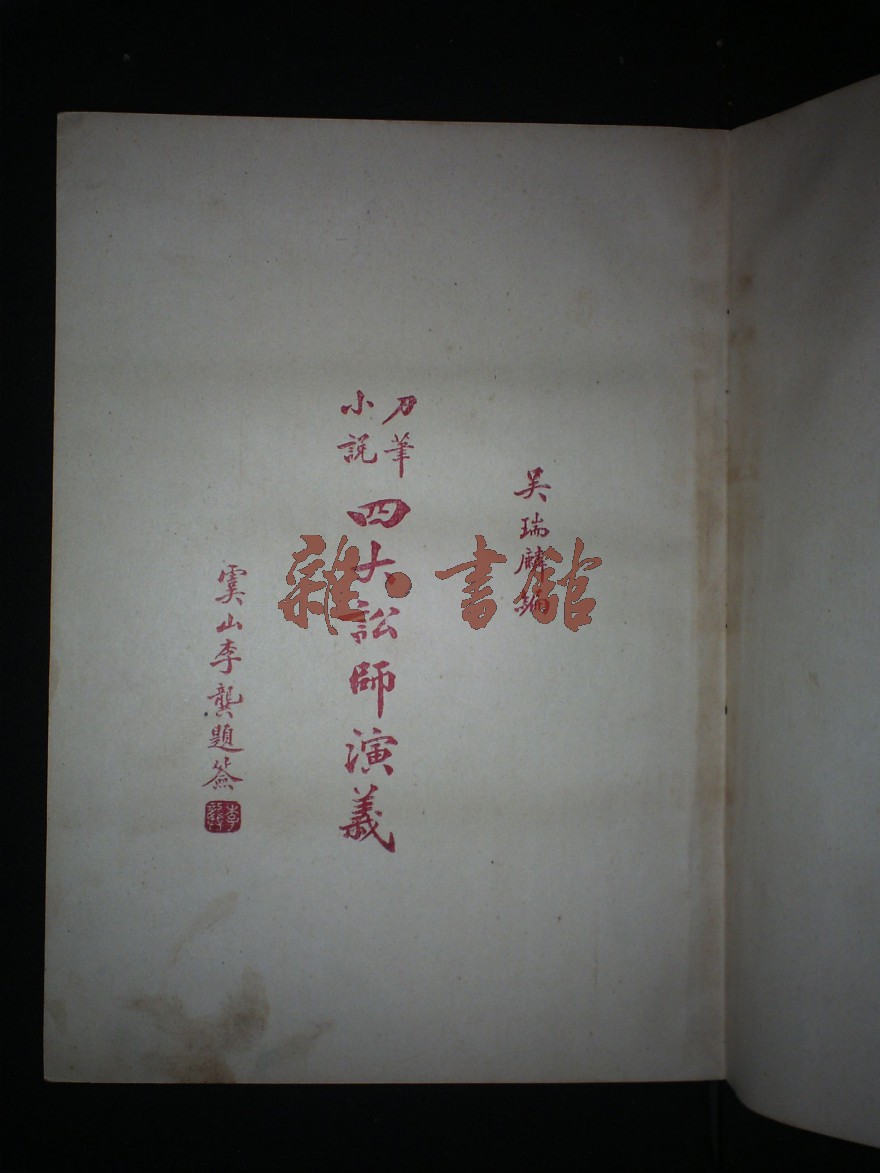 吴瑞麟編
刀筆
小説
四大訟師演義
虞山李龔題簽
雜·書館